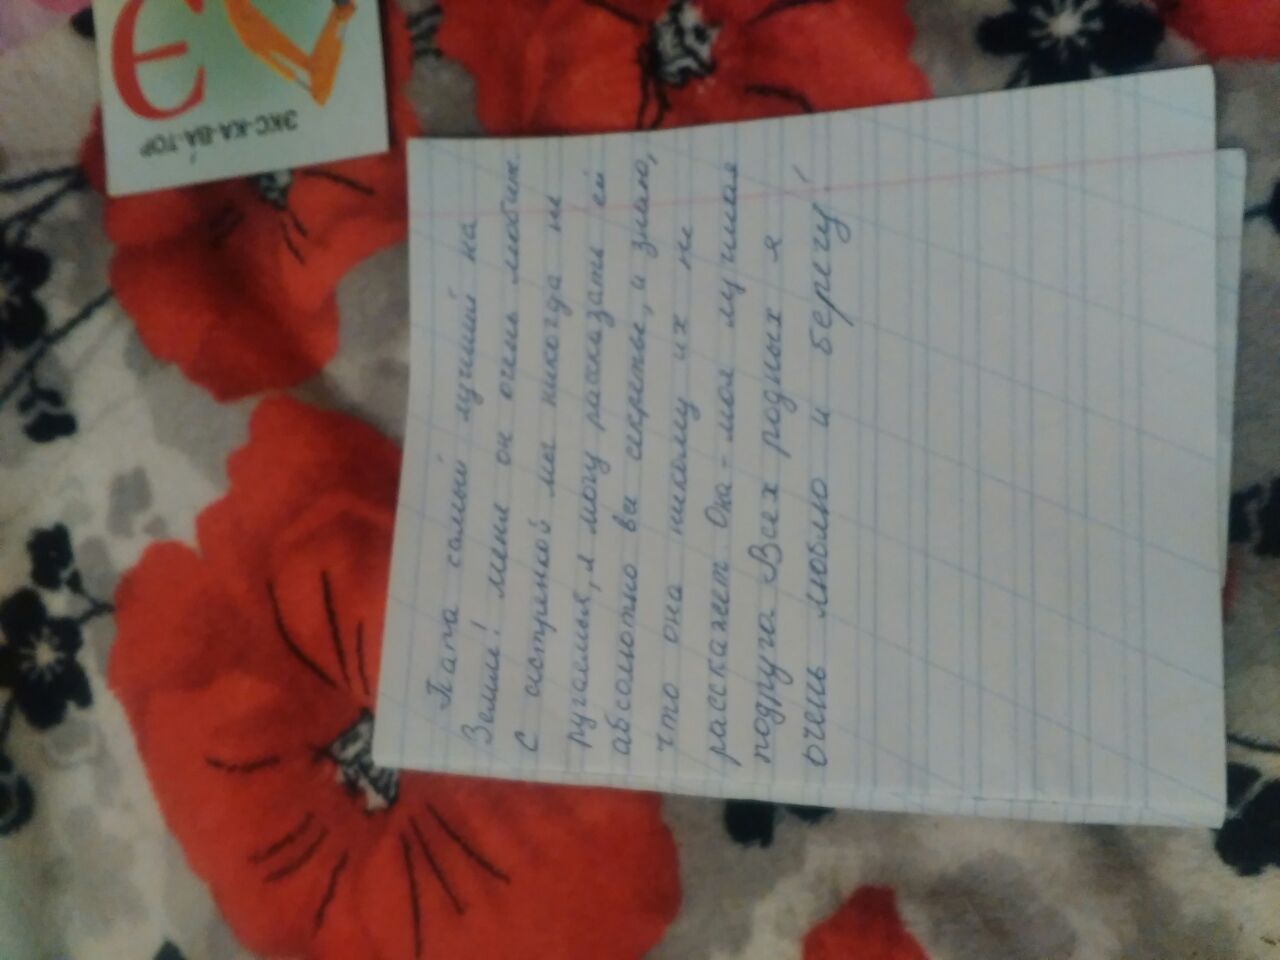 Э
ЭКС-КА-ВА́-ТОР
Папа самый лучший на
Земле! меня он очень любит.
С сестрёнкой мы никогда не
ругаемся, я могу рассказать ей
абсолютно все секреты, и знаю,
что она никому их не
расскажет. Она - моя лучшая
подруга. Всех родных я
очень люблю и берегу!